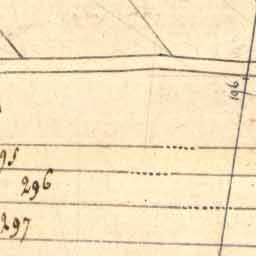 196
95
296
297